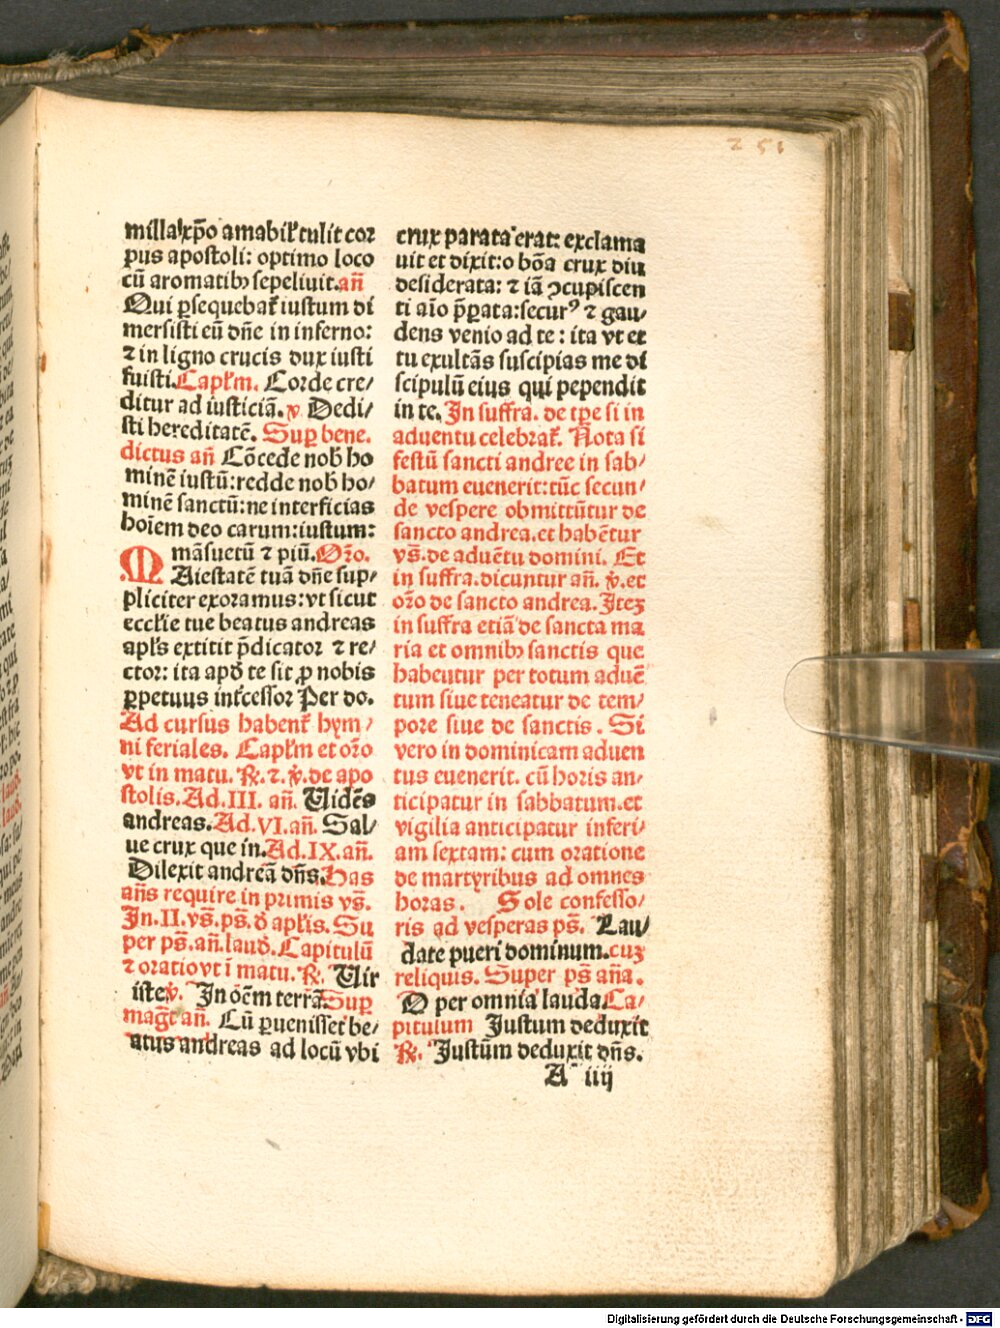 251
milla xp̄o amabil̉ tulit cor
pus apostoli: optimo loco
cū aromatibꝫ sepeliuit. an̄
Qui ꝑsequebat᷑ iustum di
mersisti eū dn̄e in inferno:
⁊ in ligno crucis dux iusti
fuisti. Capl̓m. Corde cre/
ditur ad iusticiā. ℣ Dedi/
sti hereditatē. Suꝑ bene.
dictus an̄ Cōcede nob̄ ho
minē iustū: redde nob̄ ho/
minē sanctū: ne interficias
hoīem deo carum: iustum:
māsuetū ⁊ piū. Or̄o.
MAiestatē tuā dn̄e sup/
pliciter exoramus: vt sicut
eccl̓ie tue beatus andreas
apl̓s extitit p̄dicator ⁊ re/
ctor: ita apđ te sit ꝓ nobis
ꝑpetuus int̓cessor Per do.
Ad cursus habent᷑ hym/
ni feriales. Capl̓m et or̄o
vt in matu. ℟. ⁊. ℣. de apo
stolis. Ad. III. an̄. Uidēs
andreas. Ad. VI. an̄. Sal/
ue crux que in. Ad. IX. an̄.
Dilexit andreā dn̄s. Has
an̄s require in primis vs̄.
In. II. vs̄. ps̄. đ apl̓is. Su
per ps̄. an̄. lauđ. Capitulū
⁊ oratio vt ī matu. ℟. Uir
iste. ℣. In ōem terrā. Suꝑ
maḡt an̄. Cū ꝑuenisset be/
atus andreas ad locū vbi
crux parata erat: exclama
uit et dixit: o bōa crux diu
desiderata: ⁊ iā ꝯcupiscen
ti aīo p̄ꝑata: securꝰ ⁊ gau/
dens venio ad te: ita vt et
tu exultās suscipias me di
scipulū eius qui pependit
in te. In suffra. de tp̄e si in
aduentu celebrat᷑. Nota si
festū sancti andree in sab/
batum euenerit: tūc secun/
de vespere obmittūtur de
sancto andrea. et habētur
vs̄. de aduētu domini. Et
in suffra. dicuntur an̄. ℣. et
or̄o de sancto andrea. Iteꝫ
in suffra etiā de sancta ma
ria et omnibꝫ sanctis que
habeutur per totum aduē
tum siue teneatur de tem/
pore siue de sanctis. Si
vero in dominicam aduen
tus euenerit. cū horis an/
ticipatur in sabbatum. et
vigilia anticipatur inferi/
am sextam: cum oratione
de martyribus ad omnes
horas. Sole confesso/
ris ad vesperas ps̄. Lau/
date pueri dominum. cuꝫ
reliquis. Super ps̄ an̄a.
O per omnia lauda. Ca/
pitulum Iustum deduxit
℟. Iustūm deduxit dn̄s.
A iiij
Digitalisierung gefördert durch die Deutsche Forschungsgemeinschaft - DFG